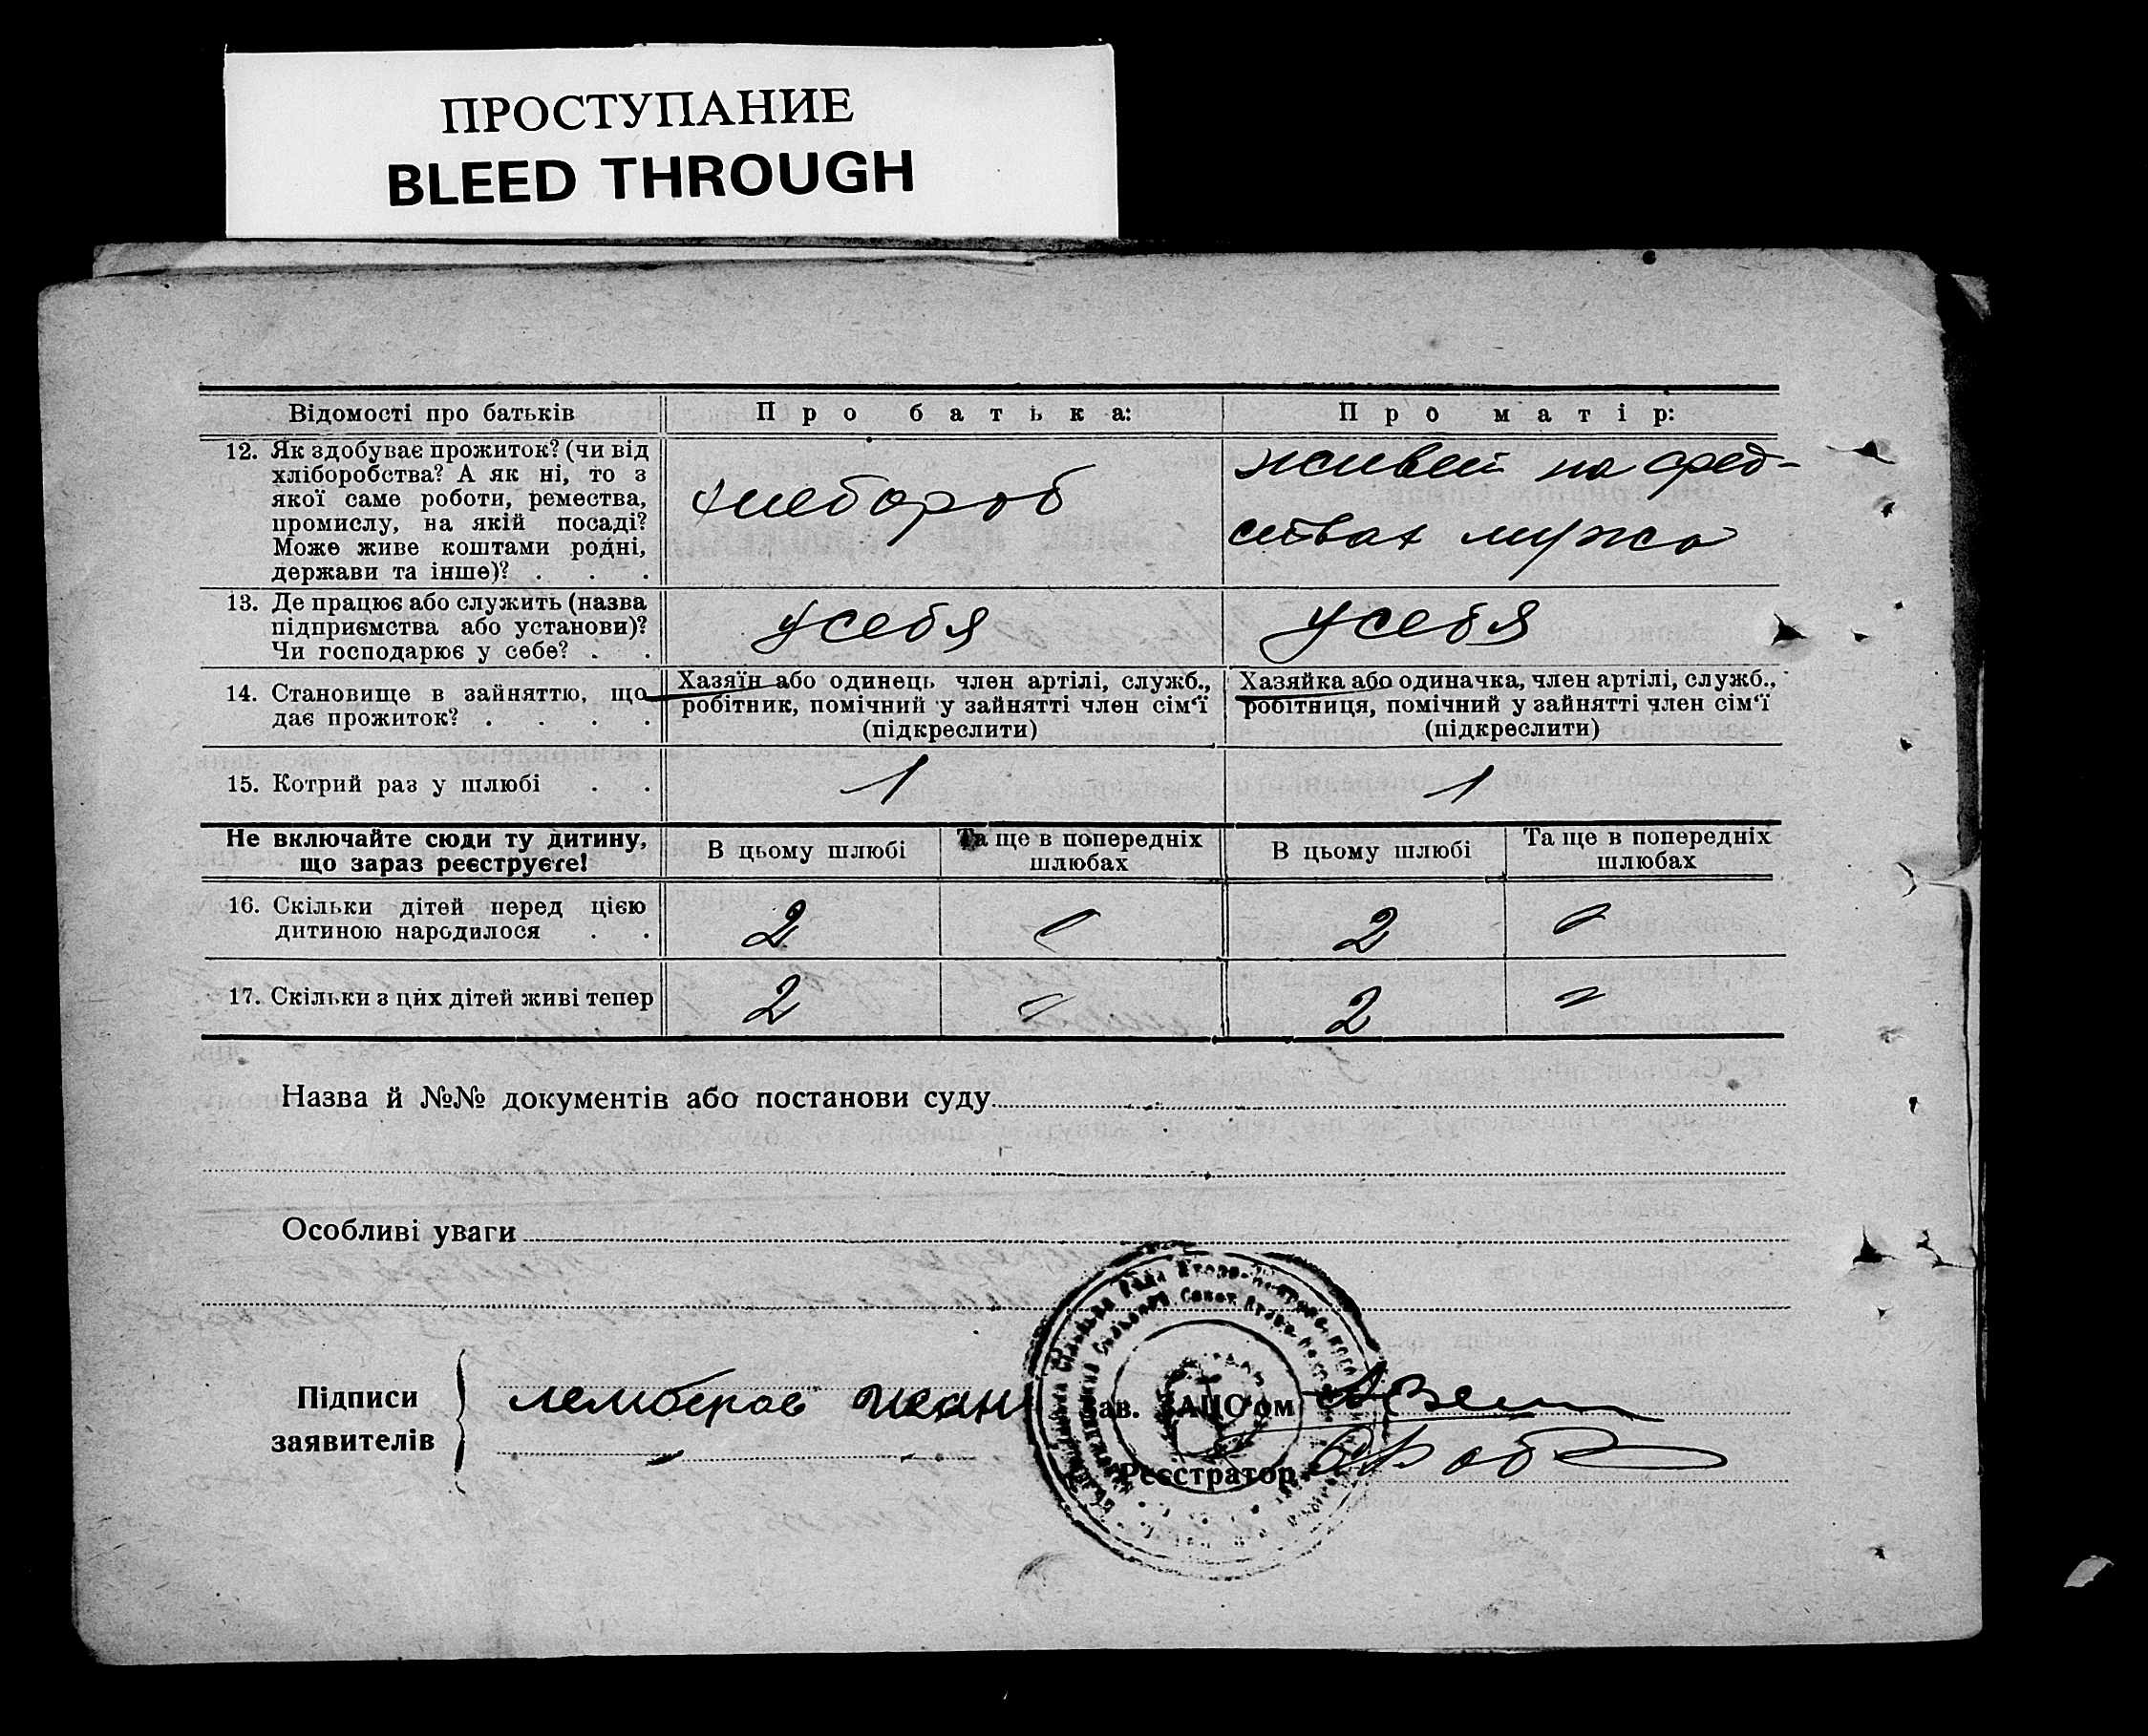 ПРОСТУПАНИЕ
BLEED THROUGH
Відомості про батьків
Про батька:
Про матір:
12. Як здобуває прожиток? (чи від
хліборобства? А як ні, то з
якої саме роботи, ремества,
промислу, на якій посаді?
Може живе коштами родні,
держави та інше)? . . .
хлебороб
живет на сред-
ствах мужа
13. Де працює або служить (назва
підприємства або установи)?
Чи господарює у себе? . .
у себя
у себя
14. Становище в зайняттю, що
дає прожиток? . . . .
Хазяїн або одинець член артілі, служб.,
робітник, помічний у зайнятті член сім'ї
(підкреслити)
Хазяйка або одиначка, член артілі, служб.,
робітниця, помічний у зайнятті член сім'ї
(підкреслити)
15. Котрий раз у шлюбі . .
1
1
Не включайте сюди ту дитину,
що зараз реєструєте!
В цьому шлюбі
Та ще в попередніх
шлюбах
В цьому шлюбі
Та ще в попередніх
шлюбах
16. Скільки дітей перед цією
дитиною народилося . .
2
2
17. Скільки з цих дітей живі тепер
2
2
Назва й №№ документів або постанови суду
Особливі уваги
Підписи
заявителів
Зав. ЗАГС'ом
Реєстратор